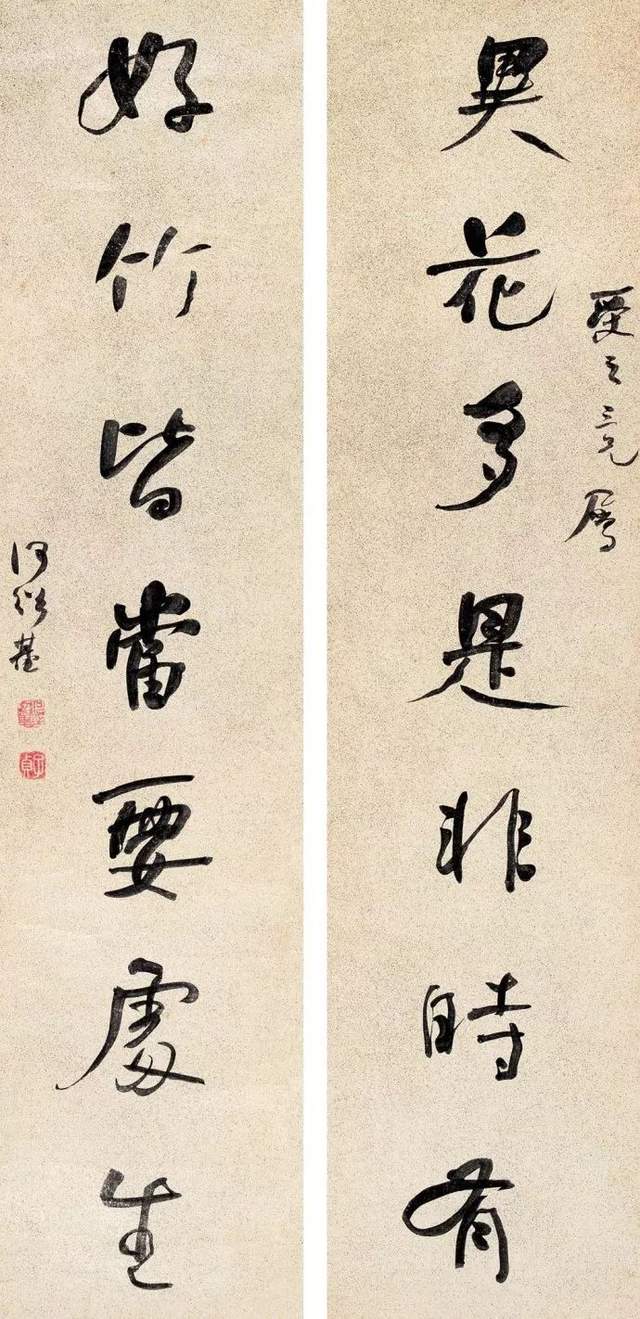 異花多是非時有
受之三兄屬
好竹皆當要處生
何紹基
子貞